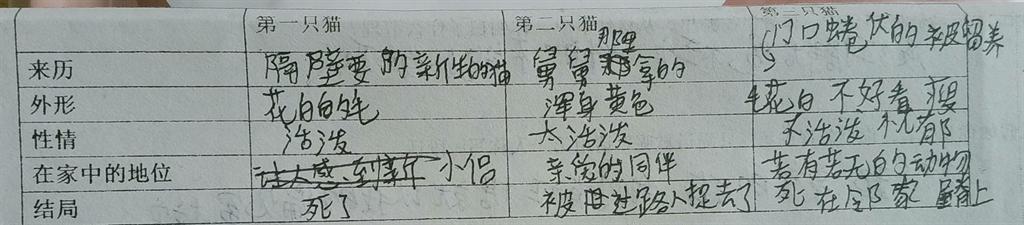 第一只猫 第二只猫 第三只猫
来历 隔壁要的新生的猫 舅舅那里拿的 门口蜷伏的被留养
外形 花白的毛 浑身黄色 毛花白 不好看 瘦
性情 活泼 太活泼 不活泼 忧郁
在家中的地位 小侣 亲密的同伴 若有若无的动物
结局 死了 被过路人捉去了 死在邻家屋脊上